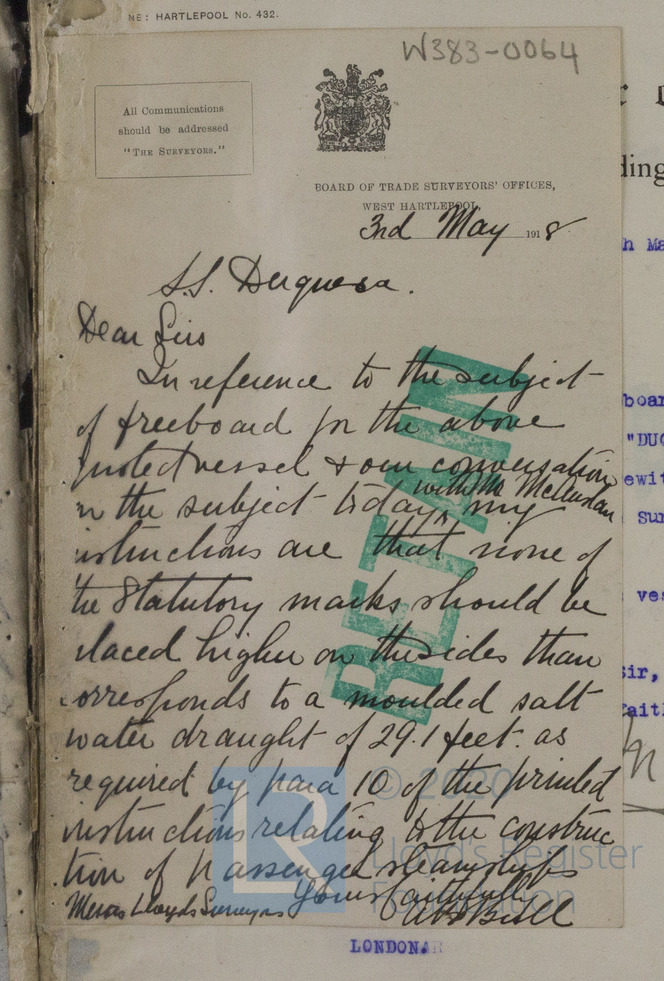 NE: HARTLEPOOL No. 432.
W383-0064
All Communications
should be addressed
"THE SURVEYORS."
BOARD OF TRADE SURVEYORS' OFFICES,
WEST HARTLEPOOL,
3rd May 1918
S.S. Duquesa.
Dear Sirs
In reference to the subject
of freeboard for the above
quoted vessel & our conversation
with Mr
on the subject today, my
instructions are that none of
the Statutory marks should be
placed higher on the sides than
corresponds to a moulded salt
water draught of 29.1 feet. as
required by para 10 of the printed
instructions relating to the construc
tion of passenger steamships
Yours faithfully
Messrs Lloyds Surveyors
RETAIN
© 2020
Lloyd's Register
Foundation
LR
ding
h Ma
boar
"DUQ
ewit
Sur
ves
Sir,
Fait
LONDON